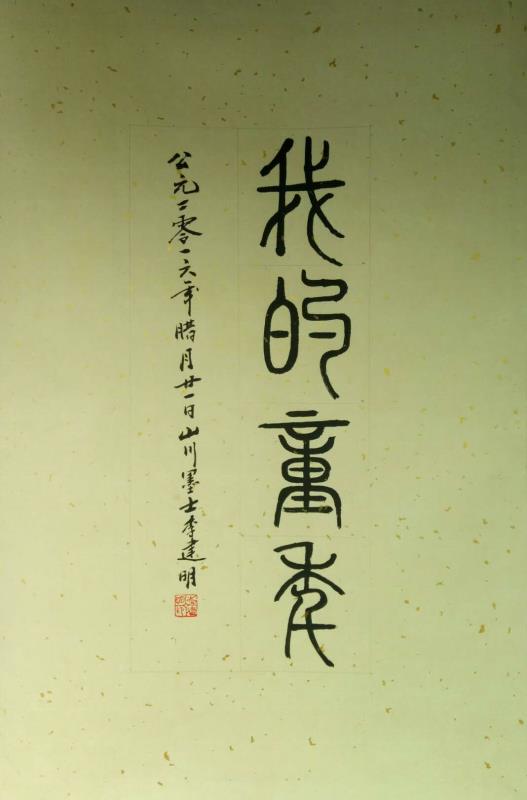 我的童年
公元二零一六年腊月廿一日山川墨士李建明